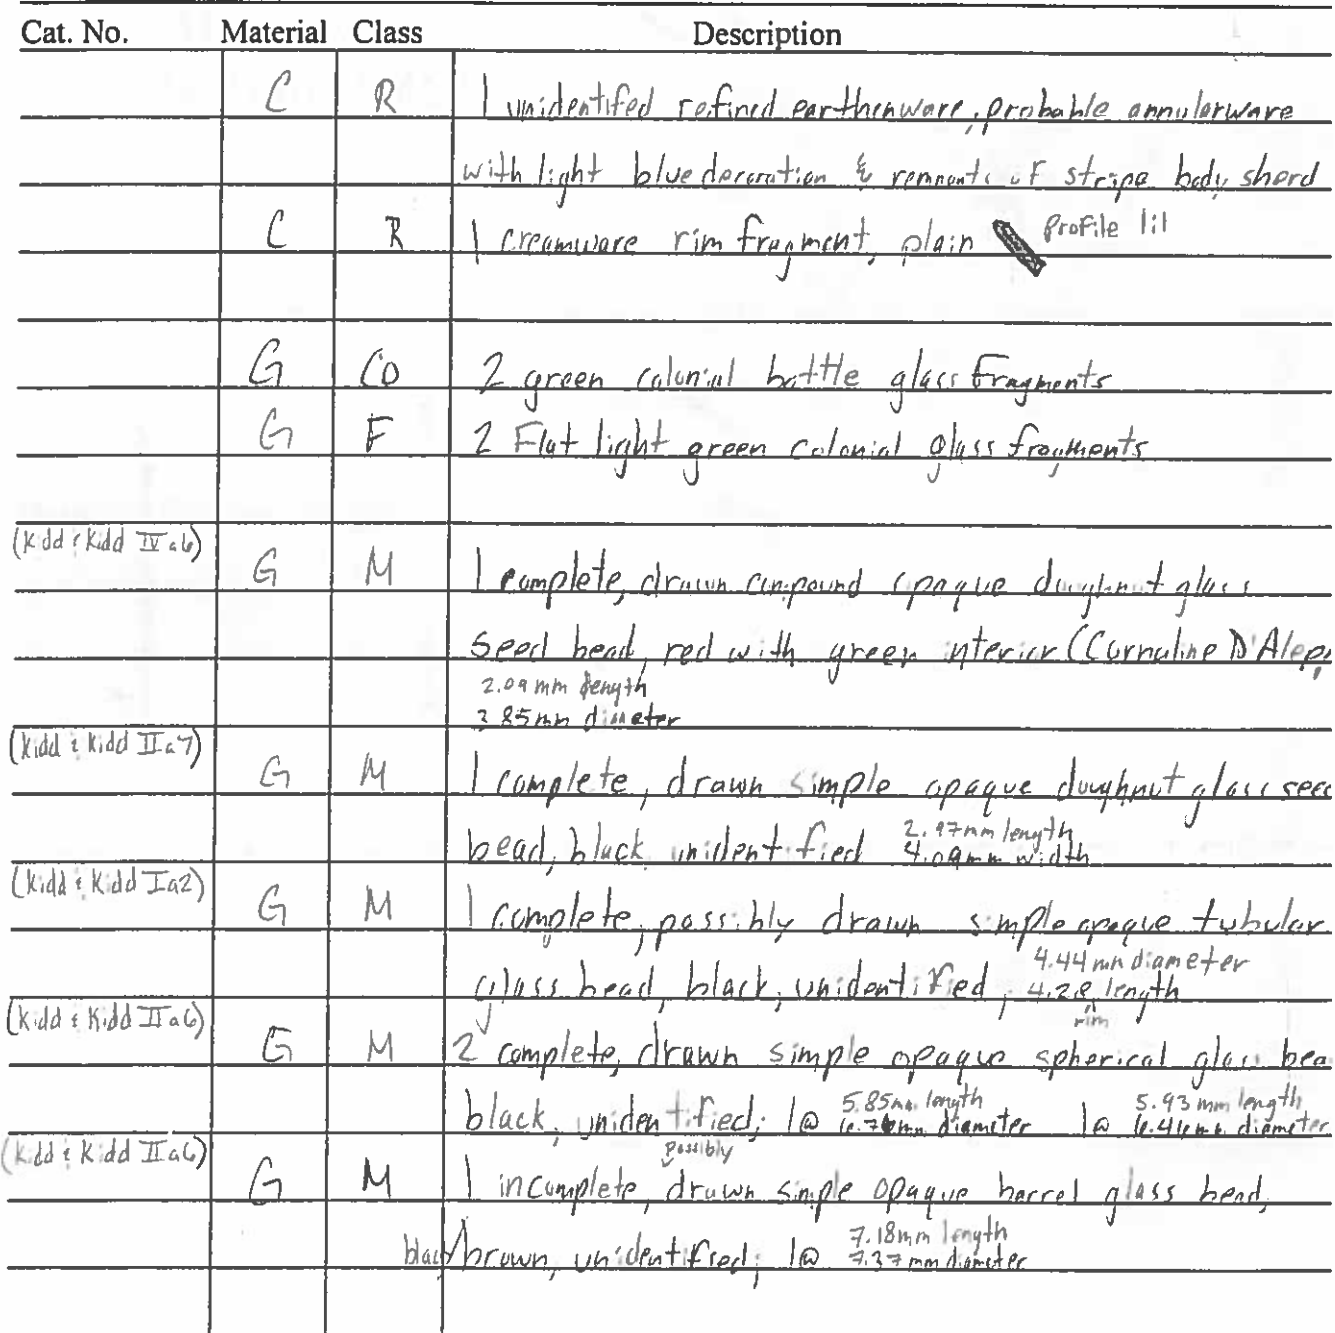 Cat. No. Material Class Description
C R 1 unidentifed refined earthenware, probable annularware
with light blue decoration & remnants of stripe body sherd
C R 1 creamware rim fragment, plain profile 1:1
G CO 2 green colonial bottle glass fragments
G F 2 Flat light green colonial glass fragments
(Kidd & Kidd IVa6)
G M 1 complete, drawn compound opaque doughnut glass
seed bead, red with green interior (Cornaline D'Alepp
2.09 mm length
3.85mm diameter
(Kidd & Kidd IIa7)
G M 1 complete, drawn simple opaque doughnut glass seed
bead, black unidentified 2.97mm length
4.09mm width
(Kidd & Kidd Ia2)
G M 1 complete, possibly drawn simple opaque tubular
4.44 mm diameter
glass bead, black, unidentified, 4.28 length
(Kidd & Kidd IIa6)
G M 2 complete, drawn simple opaque spherical glass bea
5.85mm length 5.93 mm length
black, unidentified; 1@ diameter 1@ 6.46mm diameter
(Kidd & Kidd IIa6)
possibly
G M 1 incomplete, drawn simple opaque barrel glass bead,
7.18mm length
black/brown, unidentified; 1@ 7.37mm diameter